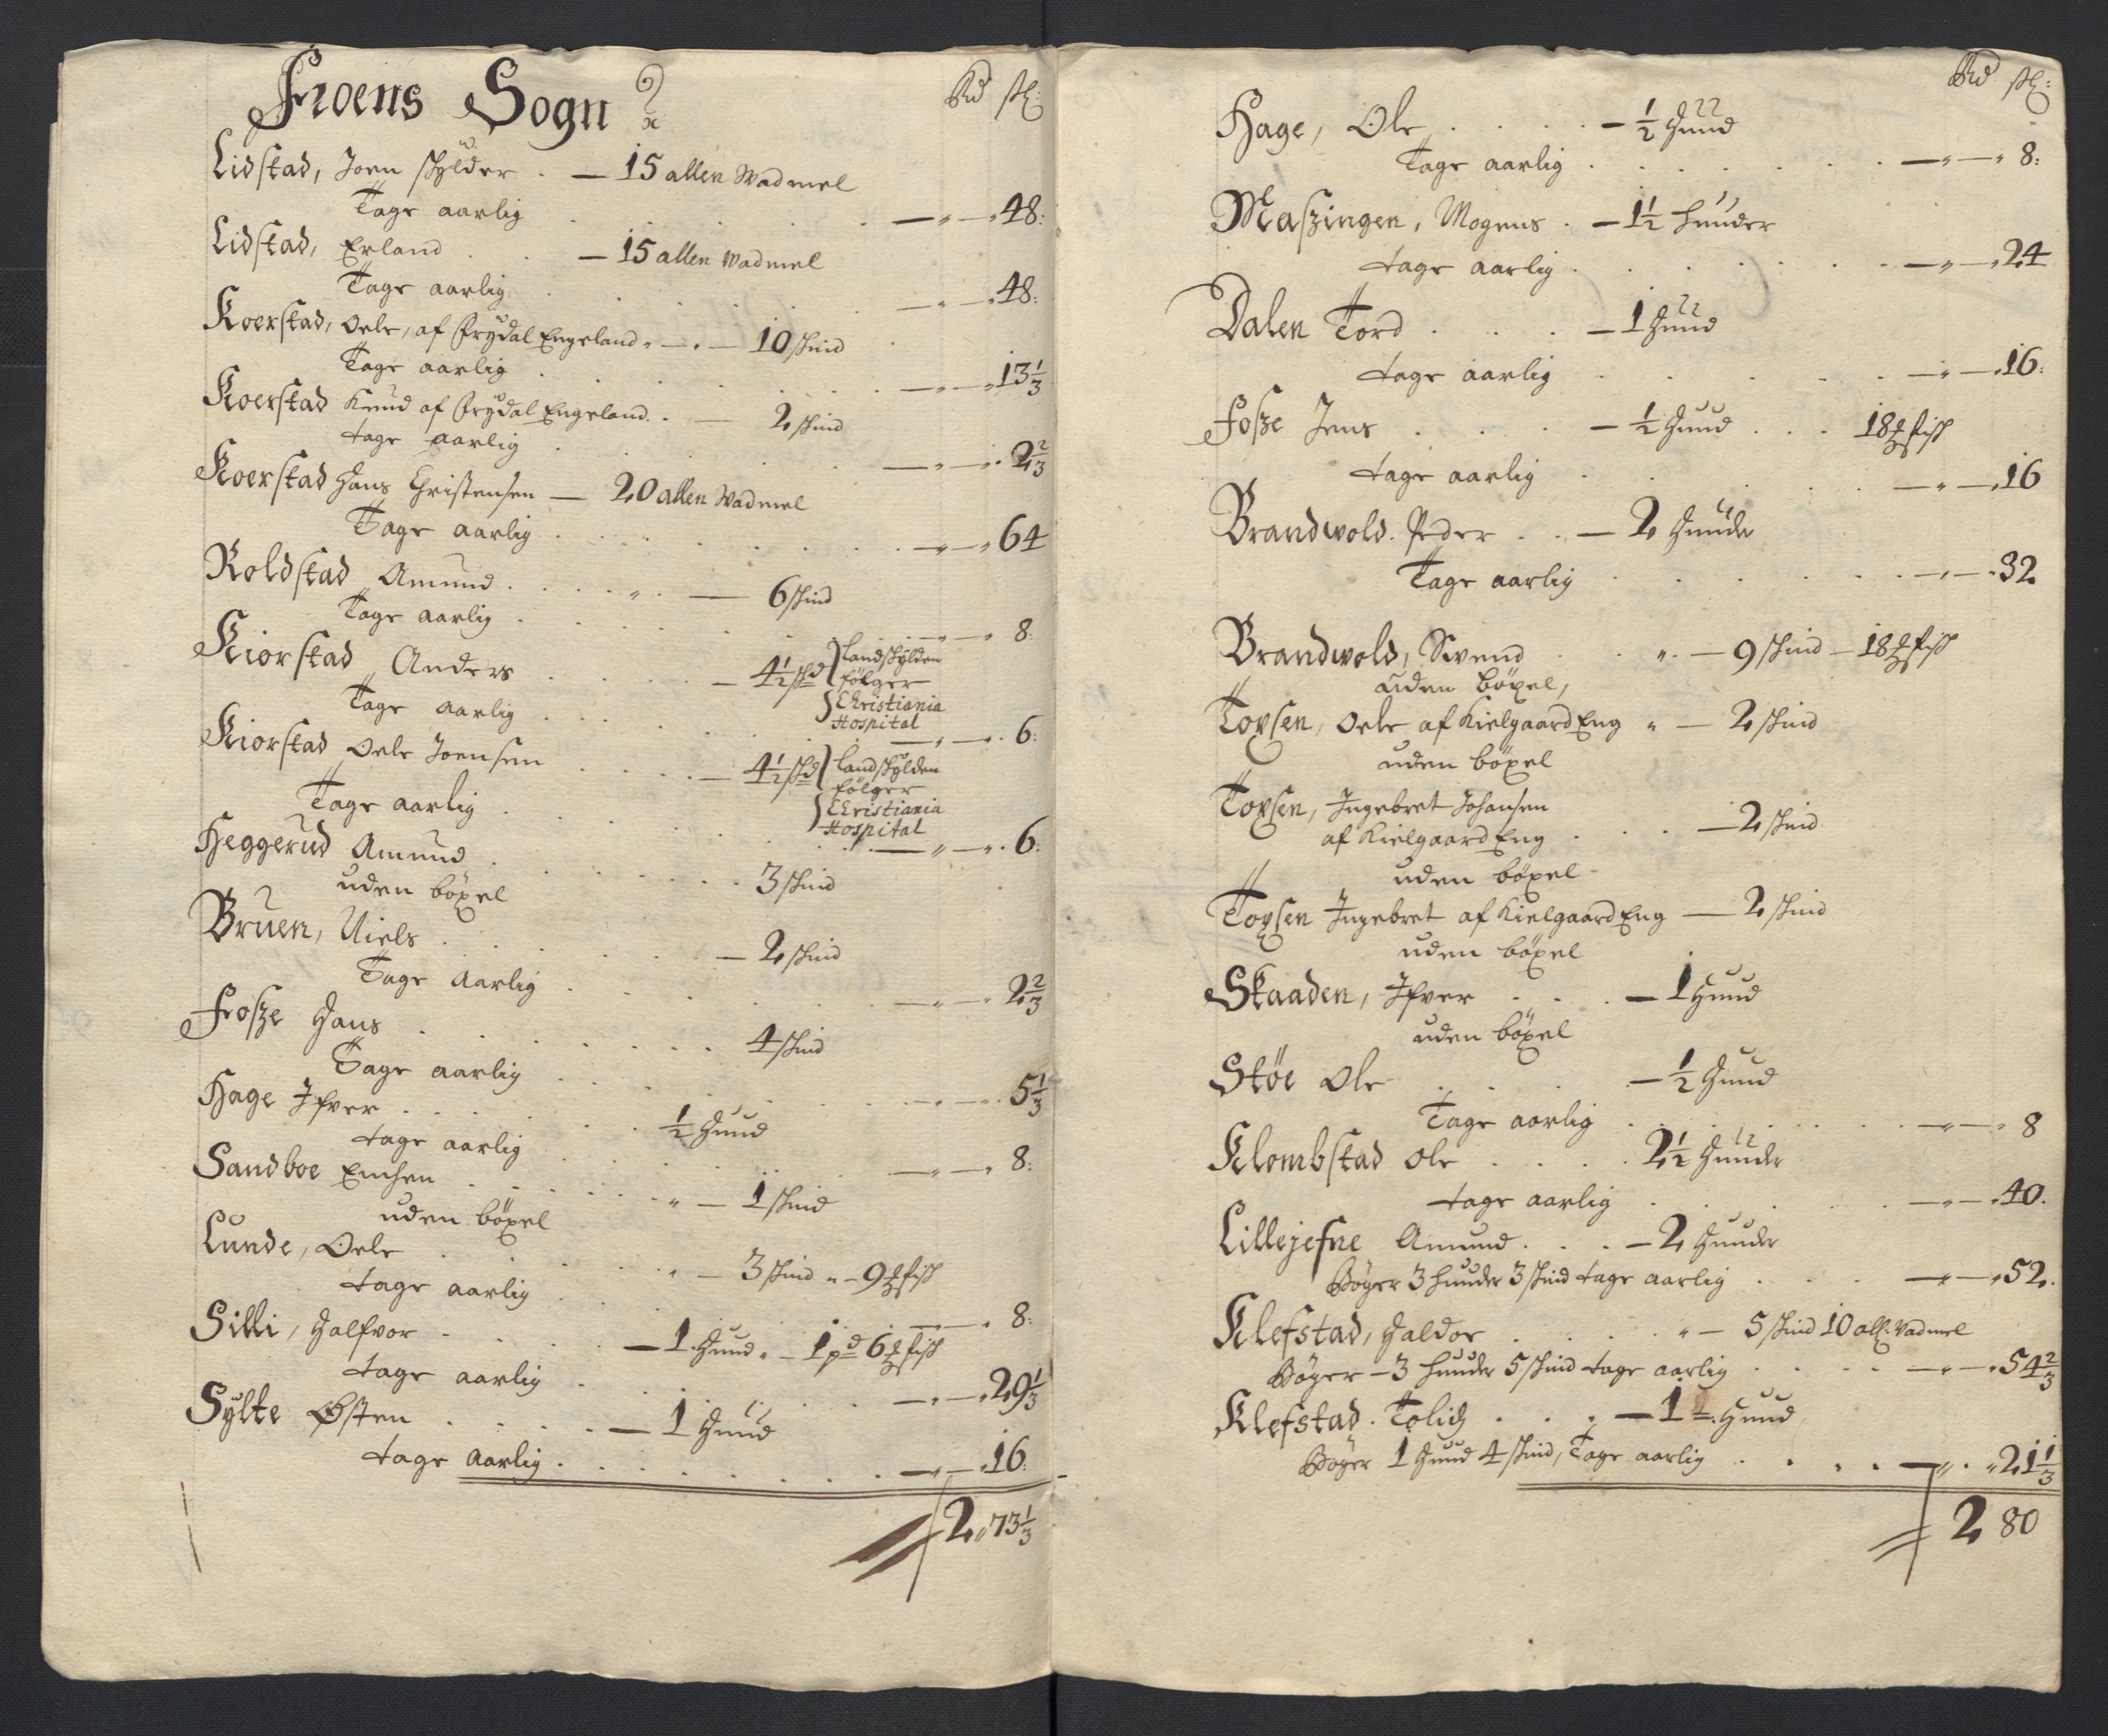 Froens Sogn
Rd ſtl:
Lidstad, Joen skylder . — 15 allen Wadmel
Tage aarlig — „ — „ 48:
Lidstad, Erland . . — 15 allen wadmel
Tage aarlig — „ — „ 48:
Koerstad, Oele, af Frydal Engeland „ — „ — 10 skind
Tage aarlig — „ — „ 13 1/3
Koerstad Knud af Frydal Engeland . . — 2 skind
tage aarlig — „ — „ 2 2/3
Koerstad Hans Christensen — 20 allen Wadmel
Tage aarlig — „ — „ 64
Roldstad Amund . . . „ . — 6 skind
Tage aarlig — „ — „ 8:
Kiorstad Anders . . . — 4 1/2 skd { Landskylden
følger
Tage aarlig { Christiania
Hospital
— „ — „ 6:
Kiorstad Oele Joensen . . . — 4 1/2 skd { Landskylden
følger
Tage aarlig { Christiania
Hospital
— „ — „ 6:
Heggerud Amund . . . 3 skind
uden böxel
Bruen, Niels . . . — 2 skind
Tage Aarlig — „ — „ 2 2/3
Fosze Hans . . . 4 skind
Tage aarlig — „ — „ 5 1/3
Hage Ifver . . . 1/2 Hund
tage aarlig — „ — „ 8:
Sandboe . . . „ — 1 skind
uden böxel
Lunde, Oele . . . „ — 3 skind „ — 9 ℔ fisk
tage aarlig — „ — „ 8:
Silli, Halfvor . . . — 1 Hund „ — 1 pd 6 ℔ fisk
tage aarlig — „ — „ 29 1/3
Sylte Østen . . . — 1 Hund
tage Aarlig — „ — „ 16:
2 „ 73 1/3
Rd ſtl:
Hage, Ole . . . — 1/2 Hund
Tage aarlig — „ — „ 8:
Maszingen, Mogens . — 1 1/2 hunder
tage aarlig — „ — „ 24
Dalen Tord . . . — 1 Hund
tage aarlig — „ — „ 16:
Fosze Jens . . . — 1/2 Hund . . . 18 ℔ fisk
tage aarlig — „ — „ 16
Brandwold. Peder . . — 2 Hunder
Tage aarlig — „ — „ 32
Brandwold, Swend . . „ — 9 skind — 18 ℔ fisk
uden böxel,
Toxsen, Oele af Kielgaard Eng „ — 2 skind
uden böxel
Toxsen, Ingebret Johansen
af Kielgaard Eng . . . — 2 skind
uden böxel
Toxsen Ingebret af Kielgaard Eng — 2 skind
uden böxel
Skaaden, Ifver . . . — 1 Hund
uden böxel
Støe Ole . . . — 1/2 Hund
Tage aarlig — „ — „ 8
Klombstad Ole . . . 2 1/2 Hunder
tage aarlig — „ — „ 40.
Lillejefne Amund . . . — 2 Hunder
Bøger 3 hunder 3 skind tage aarlig — „ — „ 52.
Klefstad, Haldor . . . „ — 5 skind 10 all: Vadmel
Bøger — 3 hunder 5 skind tage aarlig — „ — „ 54 2/3
Klefstad. . . . — 1 Hund
Bøger 1 Hund 4 skind, Tage aarlig — „ . „ 21 1/3
2 80